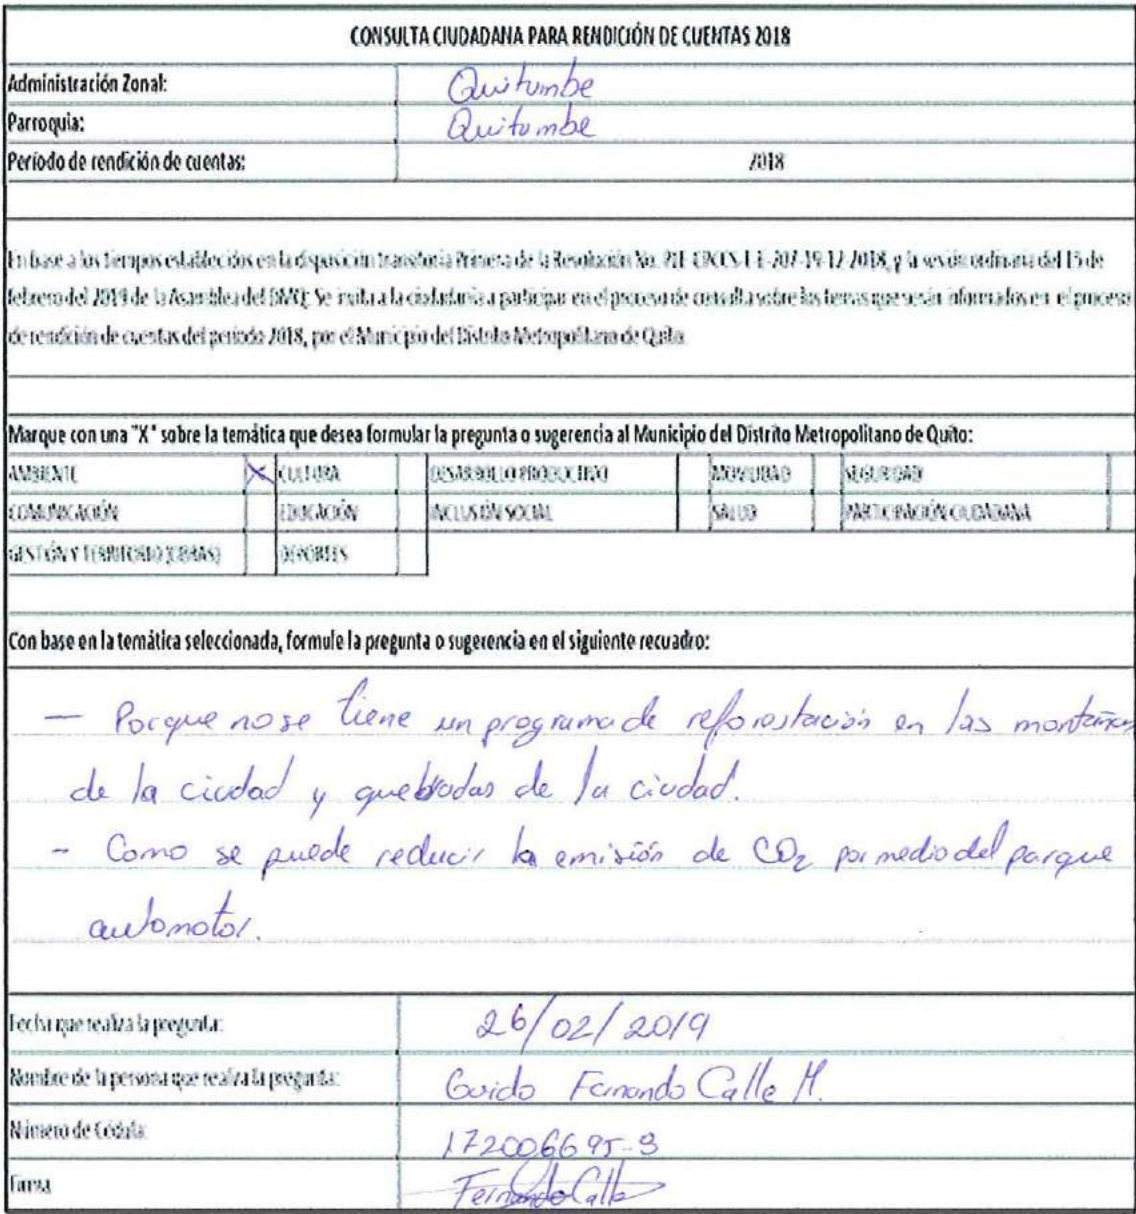 CONSULTA CIUDADANA PARA RENDICIÓN DE CUENTAS 2018
Administración Zonal: Quitumbe
Parroquia: Quitumbe
Período de rendición de cuentas: 2018
En base a los tiempos establecidos en la disposición transitoria Primera de la Resolución No. 207-19-12-2018, y la sesión ordinaria del 15 de
febrero del 2019 de la Asamblea del DMQ; Se invita a la ciudadanía a participar en el proceso de consulta sobre los temas que serán informados en el proceso
de rendición de cuentas del período 2018, por el Municipio del Distrito Metropolitano de Quito.
Marque con una "X" sobre la temática que desea formular la pregunta o sugerencia al Municipio del Distrito Metropolitano de Quito:
AMBIENTE X CULTURA DESARROLLO PRODUCTIVO MOVILIDAD SEGURIDAD
COMUNICACIÓN EDUCACIÓN INCLUSIÓN SOCIAL SALUD PARTICIPACIÓN CIUDADANA
GESTIÓN Y TERRITORIO (OBRAS) DEPORTES
Con base en la temática seleccionada, formule la pregunta o sugerencia en el siguiente recuadro:
— Porque no se tiene un programa de reforestación en las montañas
de la ciudad y quebradas de la ciudad.
- Como se puede reducir la emisión de CO2 por medio del parque
automotor.
Fecha que realiza la pregunta: 26/02/2019
Nombre de la persona que realiza la pregunta: Guido Fernando Calle M.
Número de Cédula: 172006695-9
Firma Fernando Calle